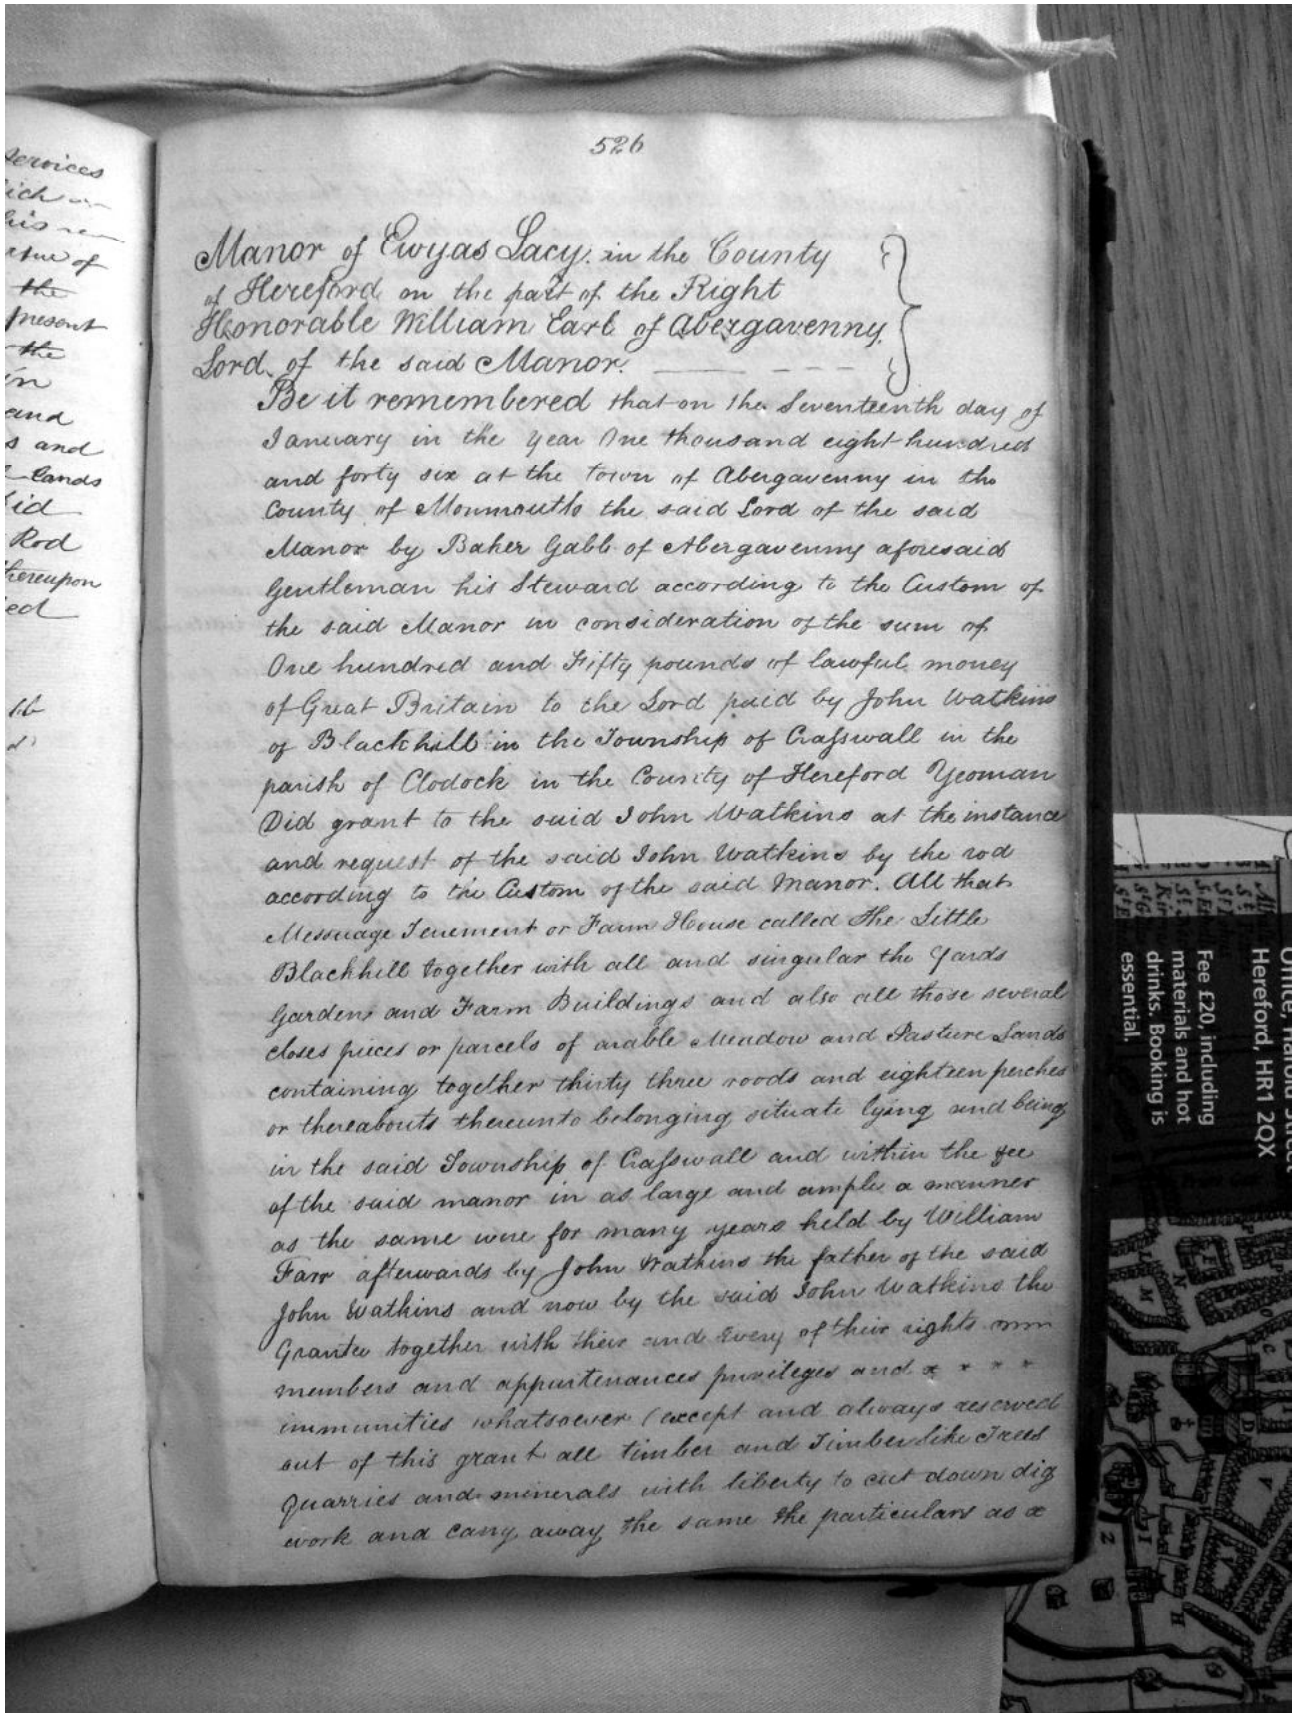 services
his
of
the
present
the
in
and
s and
Lands
Rod
thereupon
ed
526
Manor of Ewyas Lacy in the County
of Hereford on the part of the Right
Honorable William Earl of Abergavenny
Lord of the said Manor.
Be it remembered that on the Seventeenth day of
January in the year One thousand eight hundred
and forty six at the town of Abergavenny in the
County of Monmouth the said Lord of the said
Manor by Baker Gabb of Abergavenny aforesaid
Gentleman his Steward according to the Custom of
the said Manor in consideration of the sum of
One hundred and Fifty pounds of lawful money
of Great Britain to the Lord paid by John Watkins
of Blackhill in the Township of Crasswall in the
parish of Clodock in the County of Hereford Yeoman
Did grant to the said John Watkins at the instance
and request of the said John Watkins by the rod
according to the Custom of the said Manor. All that
Messuage Tenement or Farm House called The Little
Blackhill together with all and singular the Yards
Gardens and Farm Buildings and also all those several
closes pieces or parcels of arable Meadow and Pasture Lands
containing together thirty three roods and eighteen perches
or thereabouts thereunto belonging situate lying and being
in the said Township of Crasswall and within the fee
of the said manor in as large and ample a manner
as the same were for many years held by William
Farr afterwards by John Watkins the father of the said
John Watkins and now by the said John Watkins the
Grantee together with their and Every of their rights
members and appurtenances privileges and x x x x
immunities whatsoever (except and always reserved
out of this grant all timber and Timberlike Trees
Quarries and minerals with liberty to cut down dig
work and carry away the same the particulars as x
Office, Harold Street
Hereford, HR1 2QX
Fee £20, including
materials and hot
drinks. Booking is
essential.